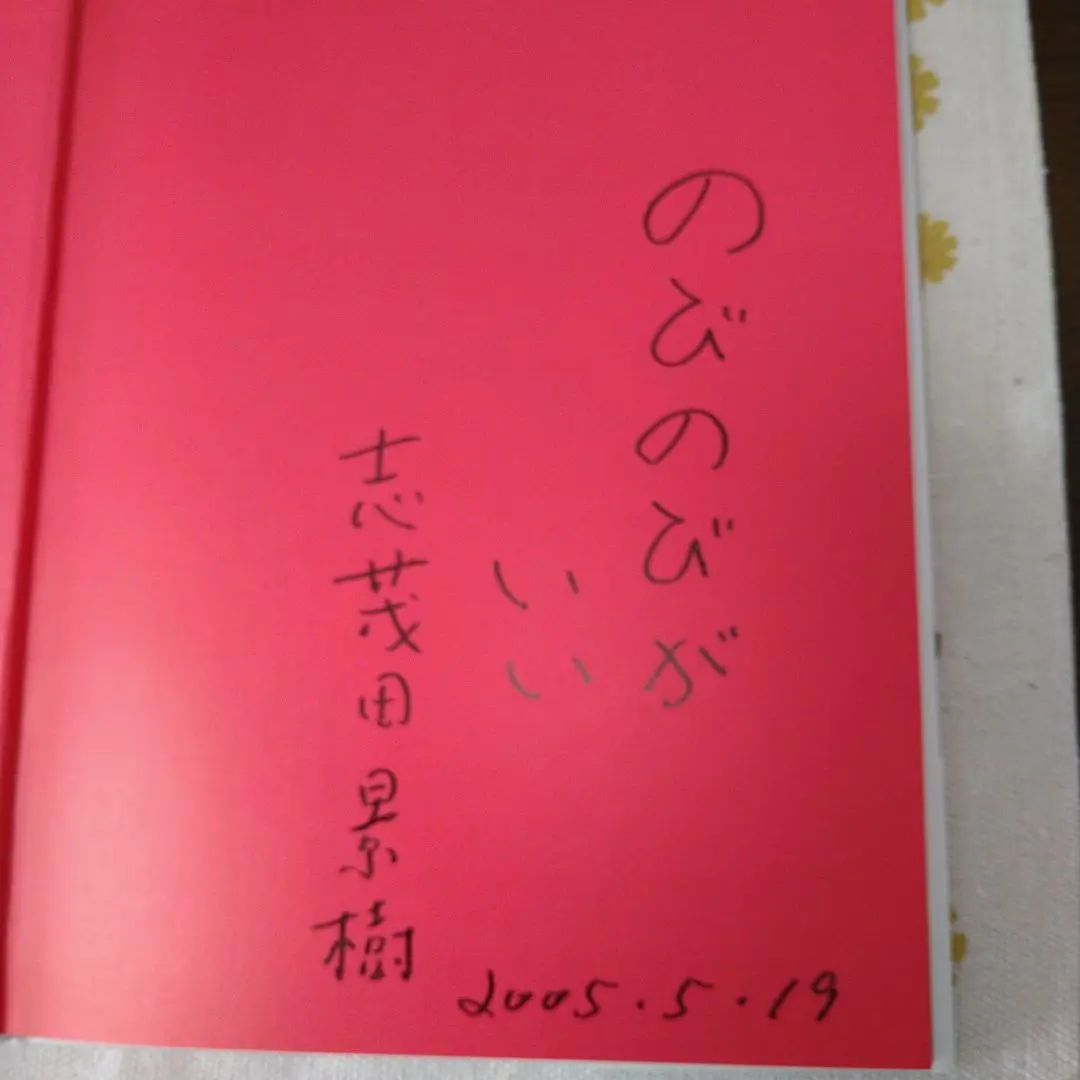 のびのびが
いい
志茂田景樹
2005.5.19